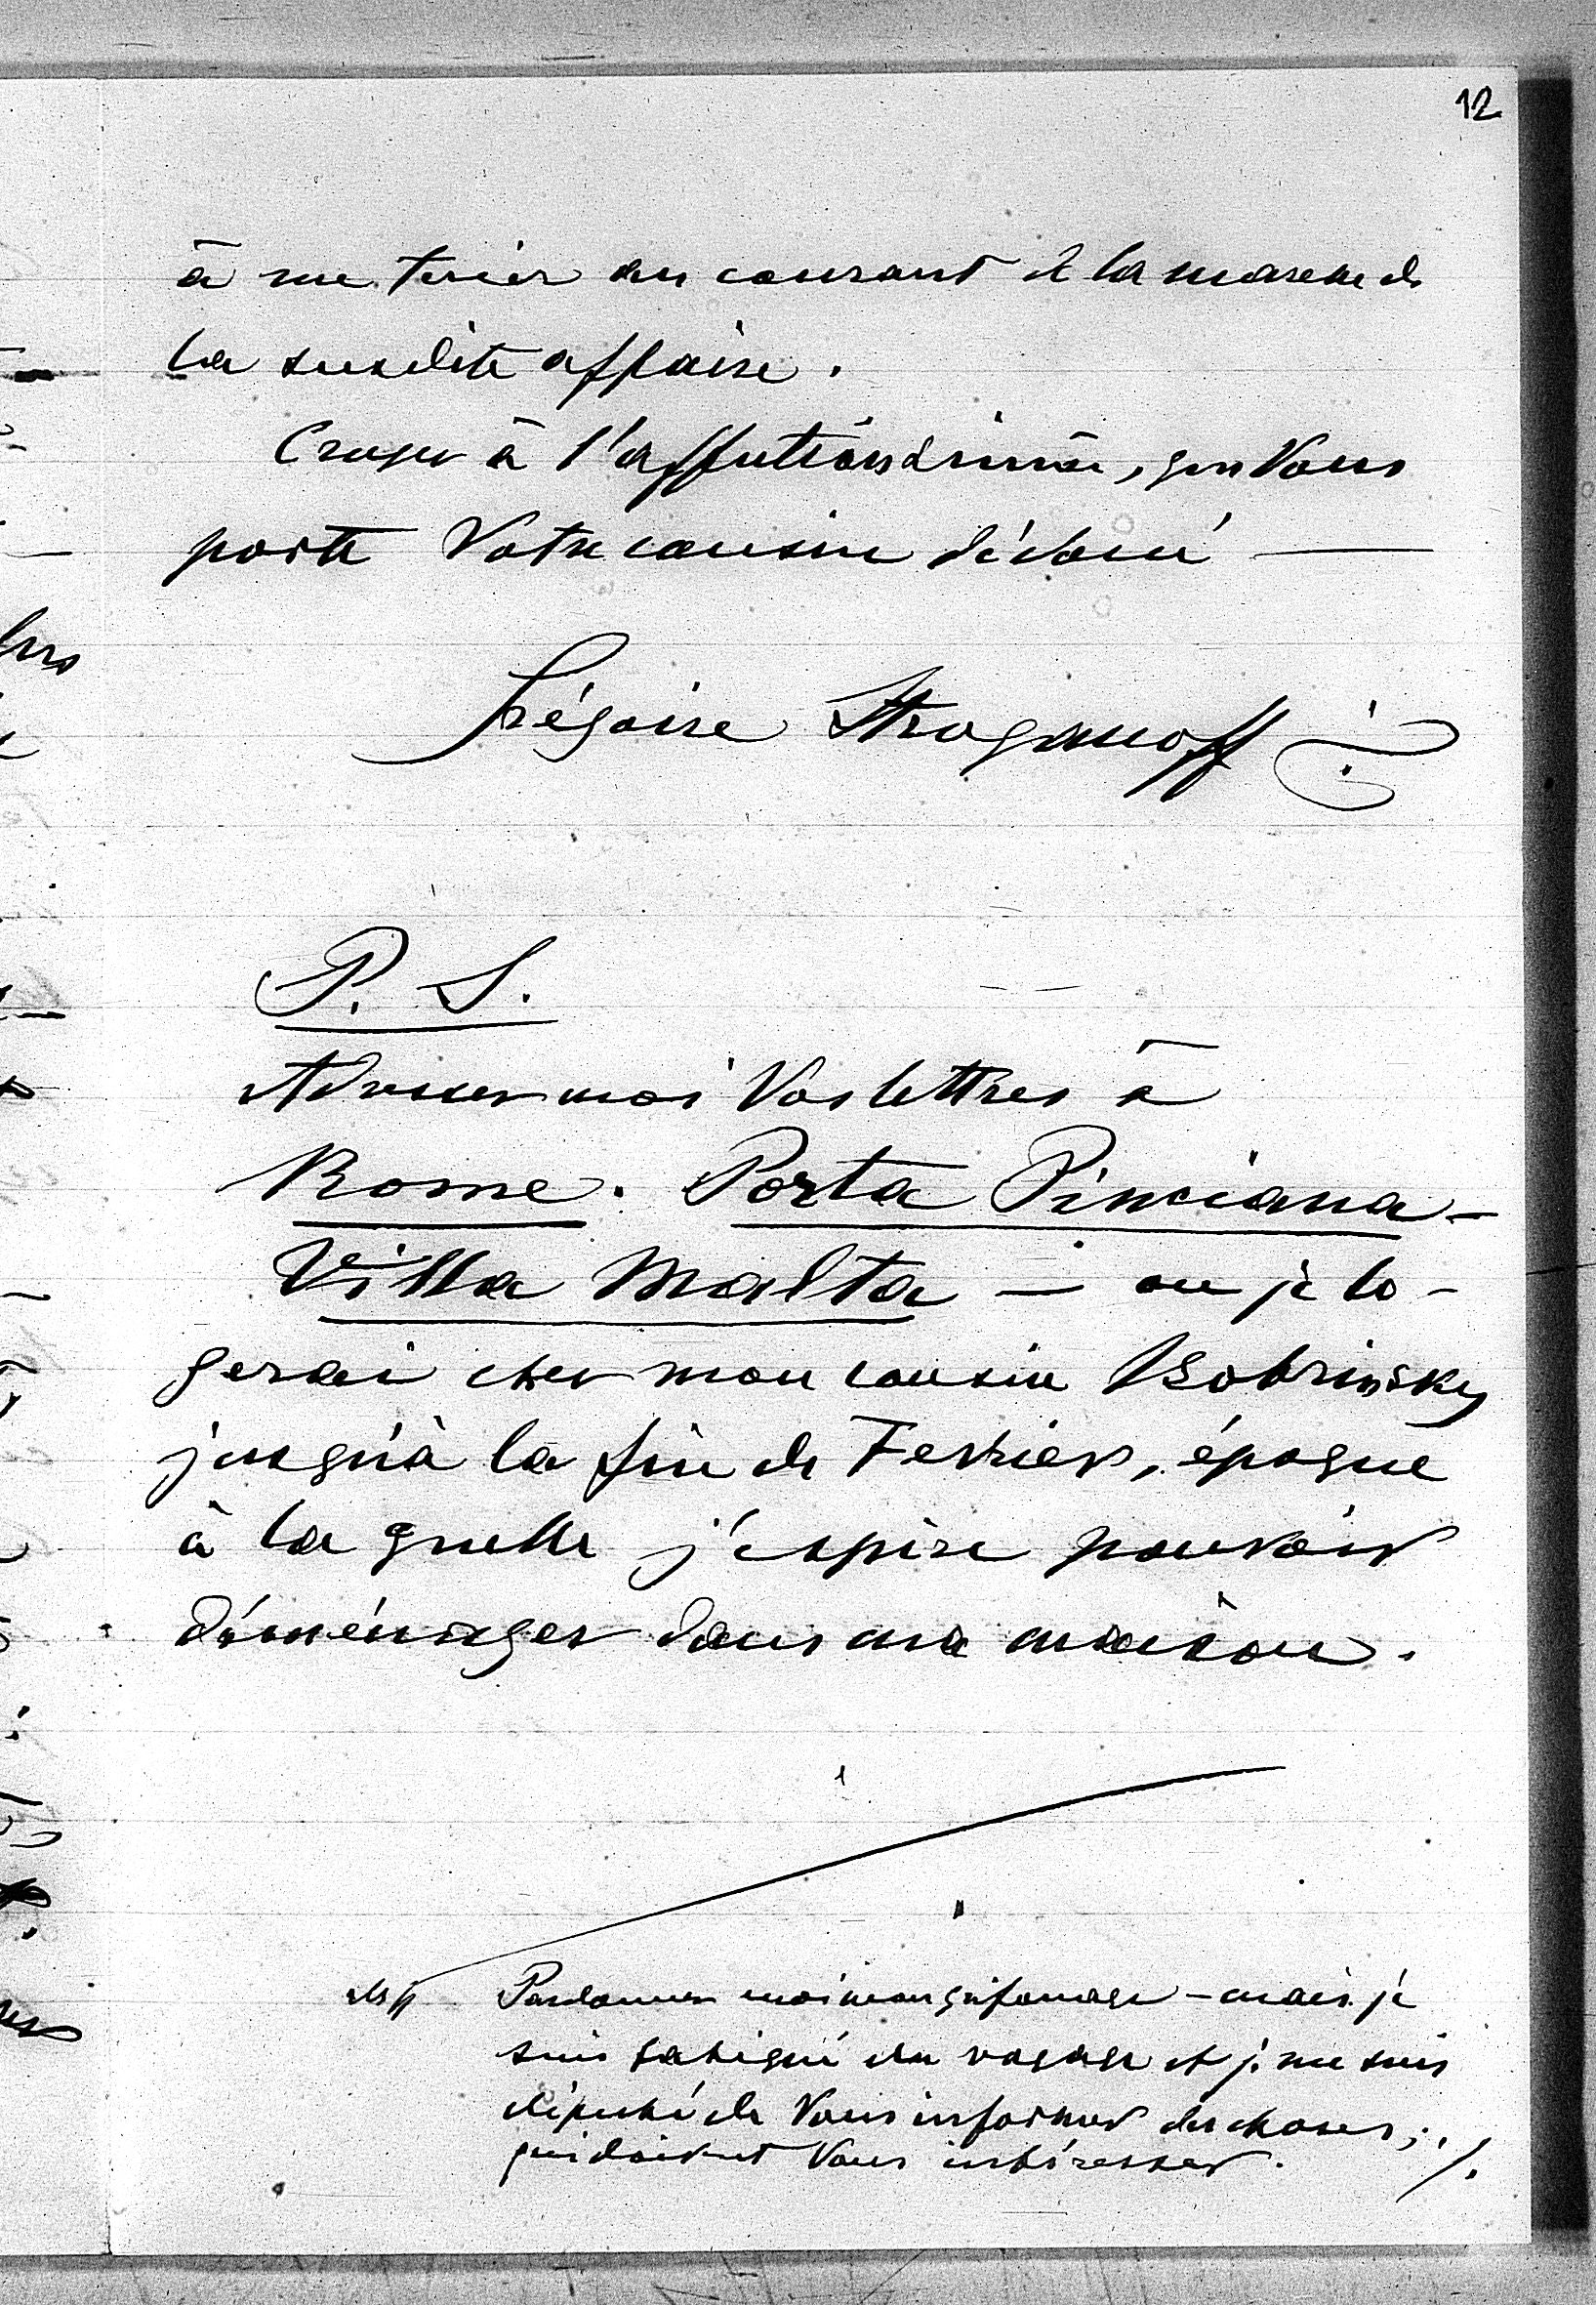 12
à me tenir au courant de la marche de
la susdite affaire.
Croyez à l'affection sincère, que Vous
porte Votre cousin dévoué —
Grégoire Stroganoff
P. S.
Adressez moi Vos lettres à
Rome. Porta Pinciana —
Villa Malta — ou je lo-
gerai chez mon cousin Bobrinsky
jusqu'à la fin de Fevrier, époque
à la quelle j'espère pouvoir
déménager dans ma maison.
Pardonnez moi mon grifonage — mais je
suis fatigué du voyage et je me suis
dépeché de Vous informer des choses,
qui doivent Vous intéresser. ./.